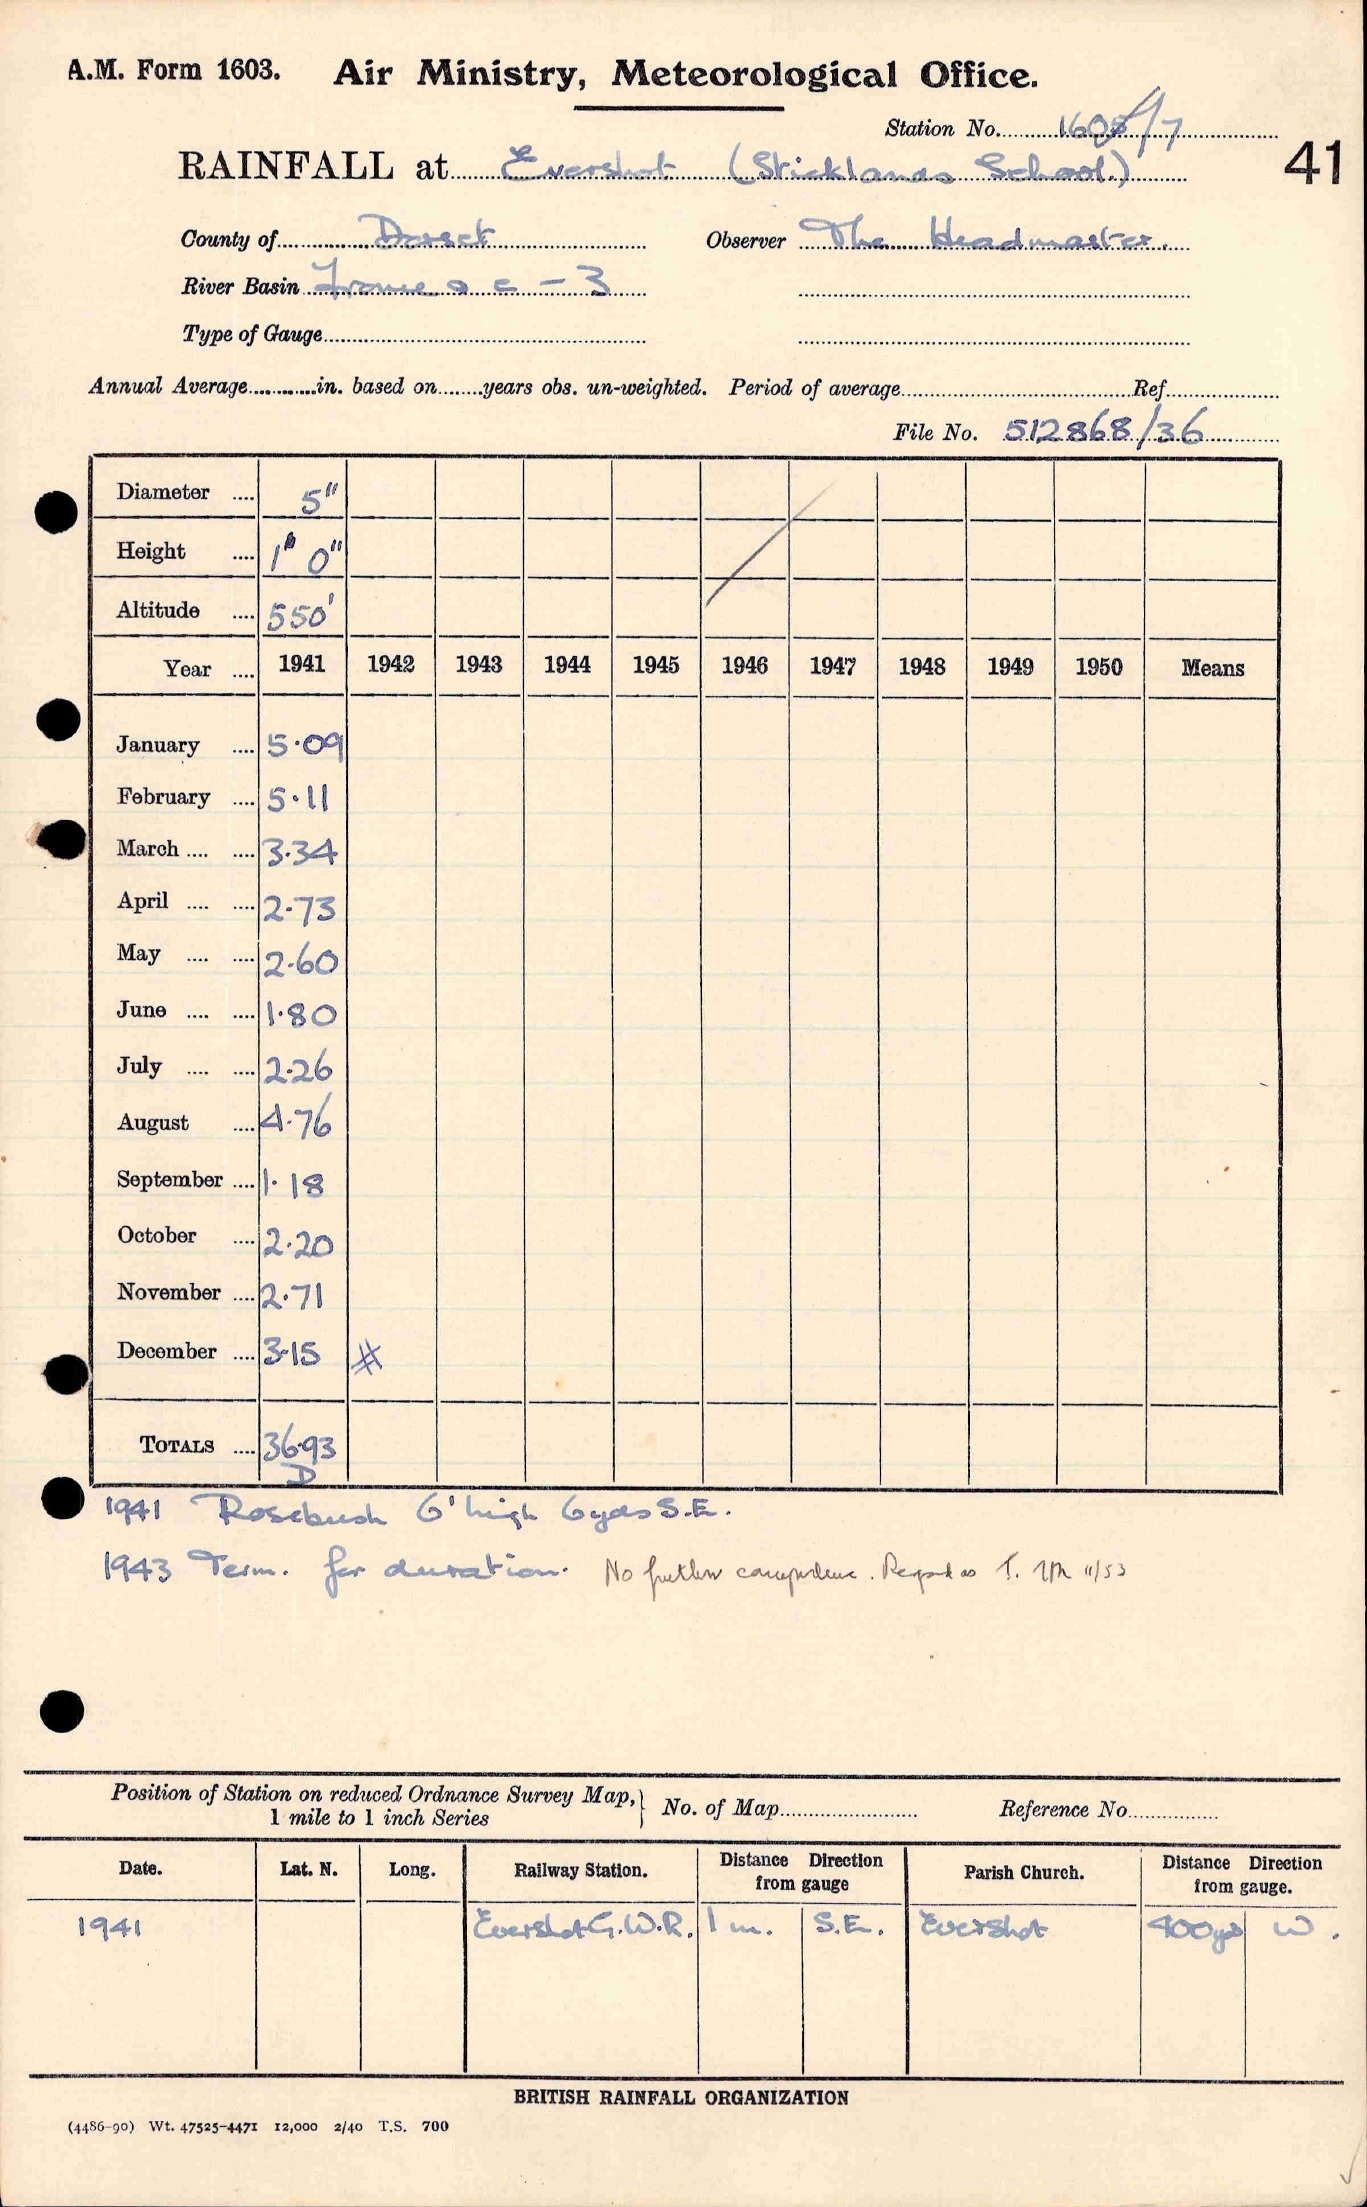 A.M. Form 1603. Air Ministry, Meteorological Office.
Station No. 1605/7
41
RAINFALL at Evershot (Sticklands School.)
County of Dorset Observer The Headmaster.
River Basin Frome &c - 3
Type of Gauge
Annual Average in. based on years obs. un-weighted. Period of average Ref.
File No. 512868/36
Diameter .... 5"
Height .... 1' 0"
Altitude .... 550'
Year .... 1941 1942 1943 1944 1945 1946 1947 1948 1949 1950 Means
January .... 5·09
February .... 5·11
March .... .... 3·34
April .... .... 2·73
May .... .... 2·60
June .... .... 1·80
July .... .... 2·26
August .... 4·76
September .... 1·18
October .... 2·20
November .... 2·71
December .... 3·15 #
TOTALS .... 36·93
D
1941 Rosebush 6' high 6yds S.E.
1943 Term. for duration. No further correspondence. Regard as T. 11/53
Position of Station on reduced Ordnance Survey Map, } No. of Map Reference No.
1 mile to 1 inch Series
Date. Lat. N. Long. Railway Station. Distance Direction from gauge Parish Church. Distance Direction from gauge.
1941 Evershot G.W.R. 1 m. S.E. Evershot 400yds W.
BRITISH RAINFALL ORGANIZATION
(4486-90) Wt. 47525-4471 12,000 2/40 T.S. 700